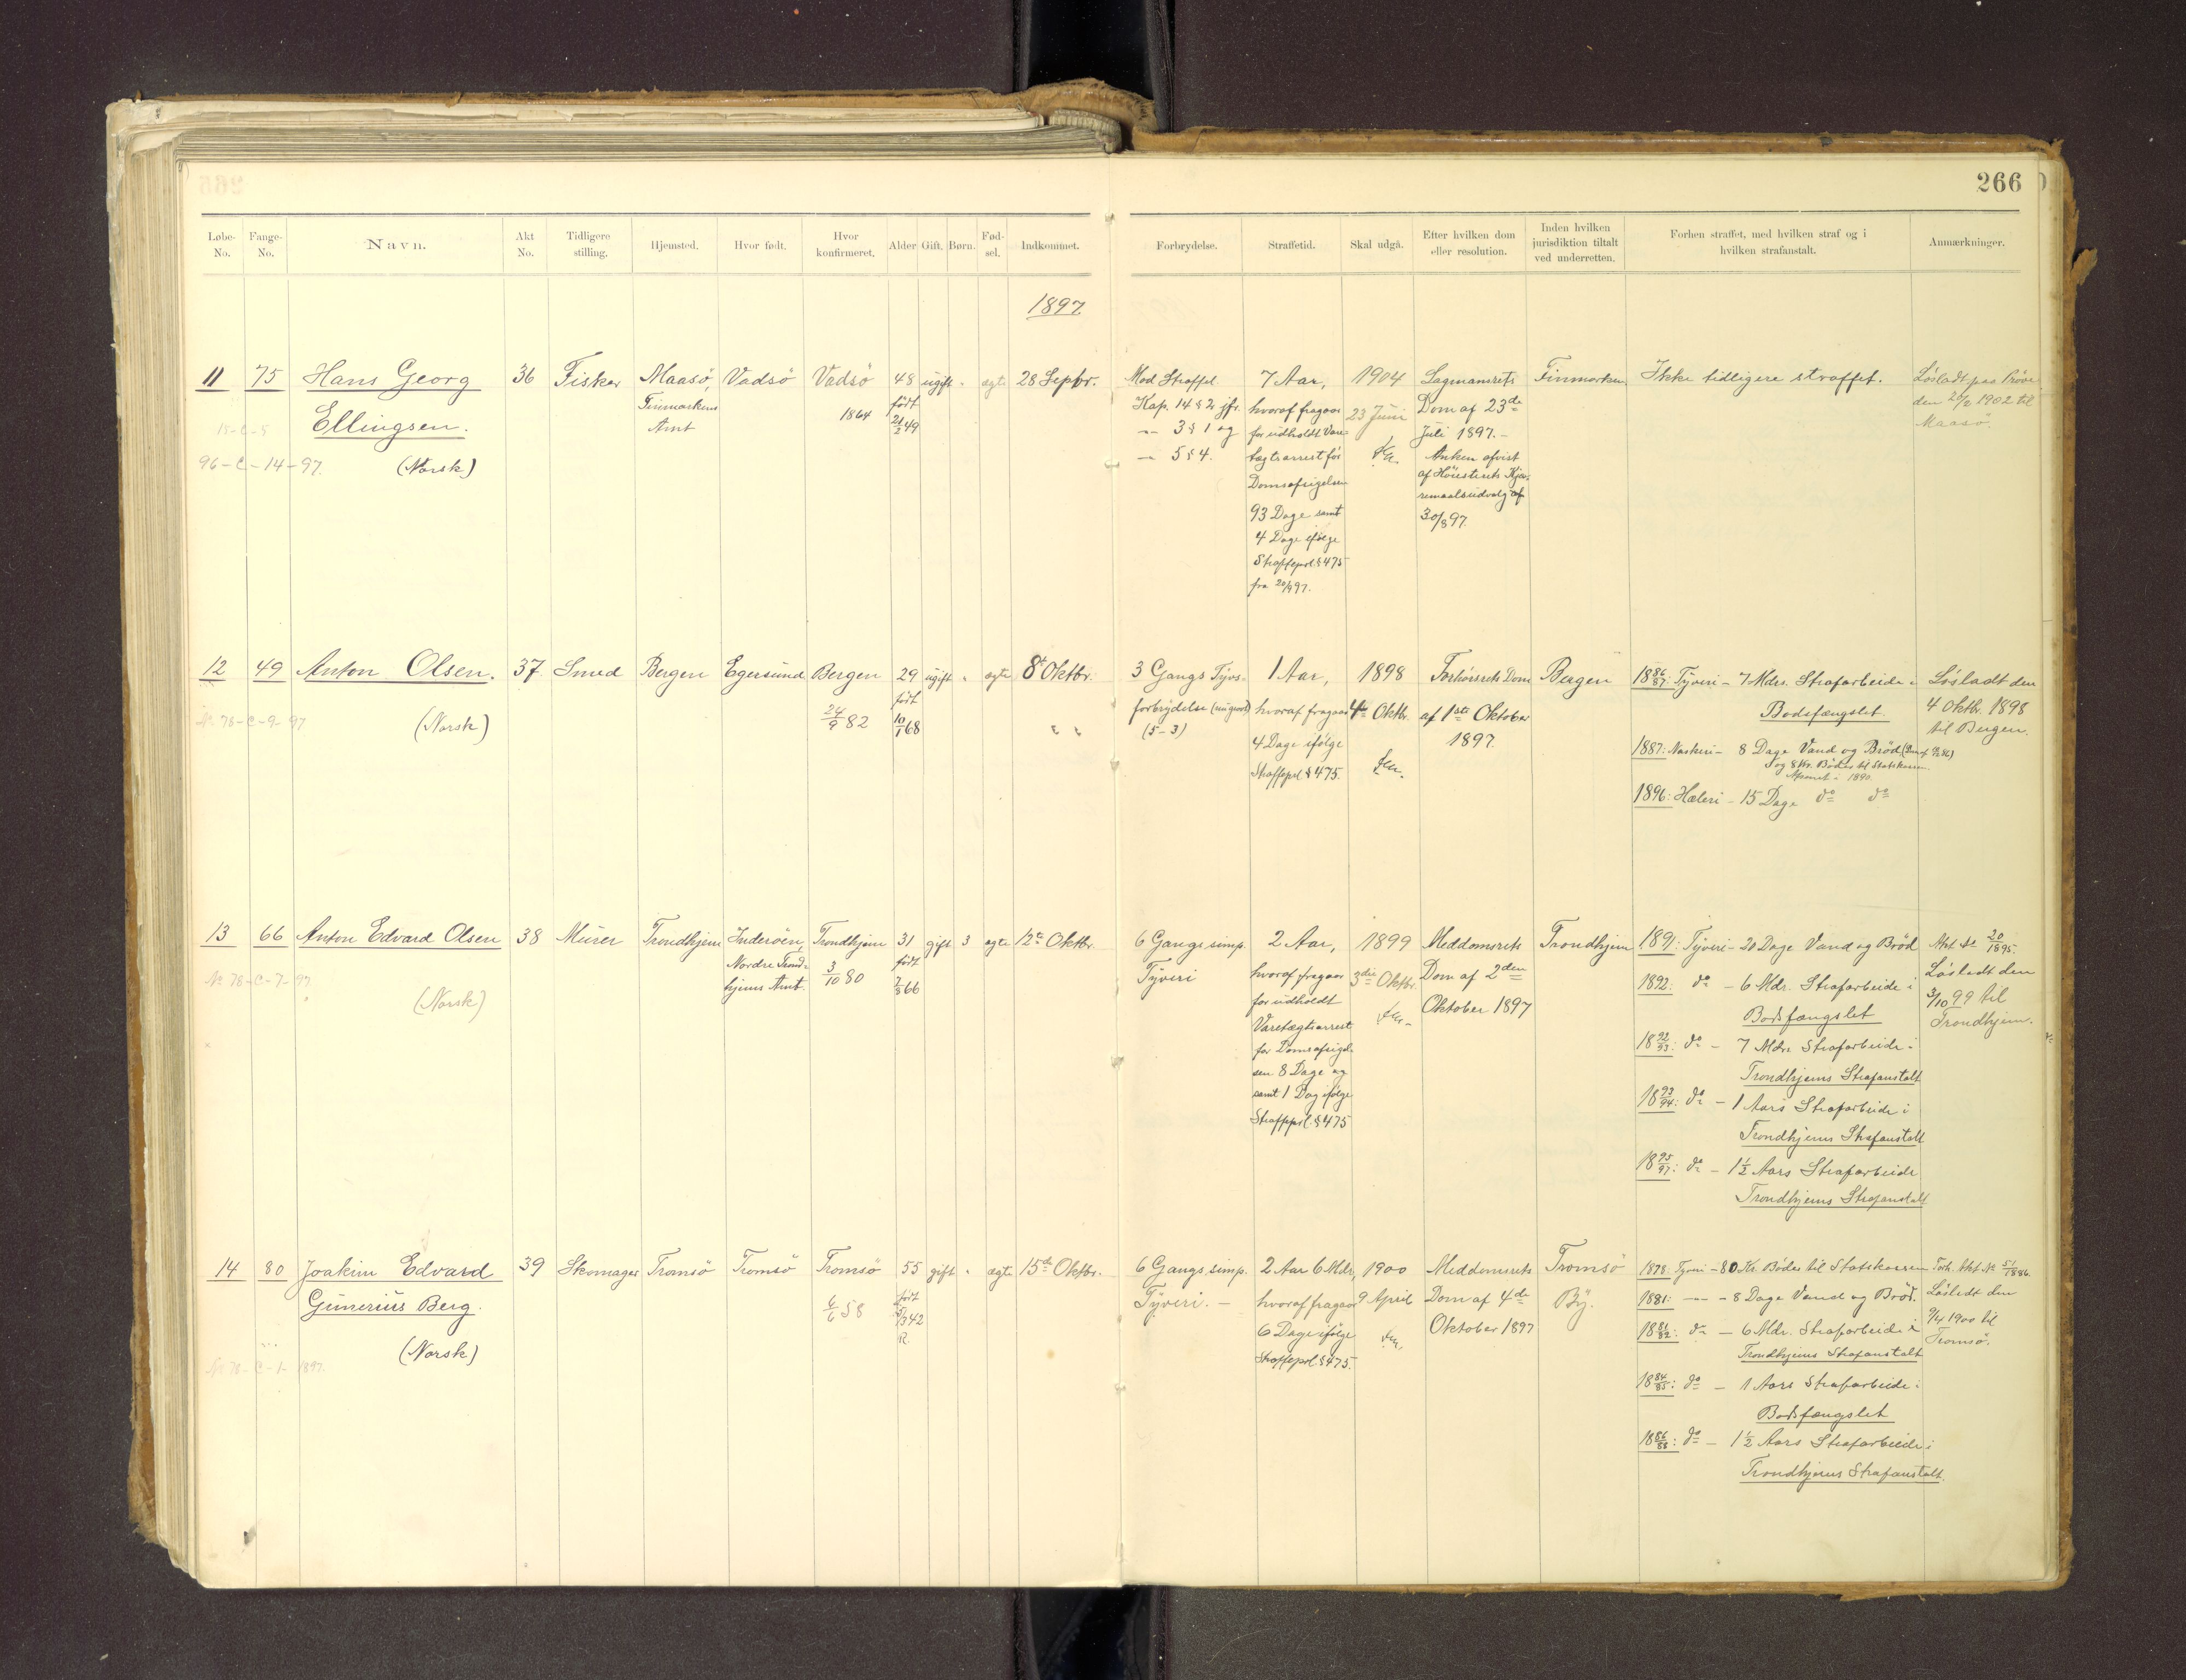 266
Løbe-No. Fange-No. Navn. Akt No. Tidligere stilling. Hjemsted. Hvor født. Hvor konfirmeret. Alder Gift. Børn. Fød-sel. Indkommet. Forbrydelse. Straffetid. Skal udgå. Efter hvilken dom eller resolution. Inden hvilken jurisdiktion tiltalt ved underretten. Forhen straffet, med hvilken straf og i hvilken strafanstalt. Anmærkninger.
1897
11 75 Hans Georg
Ellingsen.
96-C-14-97. (Norsk)
36 Fisker
Maasö,
Finmarkens
Amt
Vadsö
Vadsö
1864
48
født
21/2 49
ugift " ægte 28 Septbr.
Mod Straffel.
Kap. 14 § 2 jfr.
-"- 3 § 1 og
-"- 5 § 4.
7 Aar,
hvoraf fragaar
for udholdt Vare-
tægtsarrest før
Domsafsigelsen
93 Dage samt
4 Dage ifølge
Straffeprl. § 475
fra
1904
23 Juni
Lagmansrets
Dom af 23de
Juli 1897.-
Anken afvist
af Höiesterets Kjæ-
remaalsudvalg
30/8 97.
Finmarken
Ikke tidligere straffet.
Lösladt paa Pröve
den 1902 til
Maasö.
12 49 Anton Olsen.
No 78-C-9-97 (Norsk)
37 Smed
Bergen
Egersund
Bergen
24/9 82
29
født
10/1 68
ugift " ægte 8t Oktbr.
3 Gangs Tyvs-
forbrydelse
(5-3)
1 Aar,
hvoraf fragaar
4 Dage ifølge
Straffeprl § 475.
1898
4de Oktbr.
Forhörsrets Dom
af 1ste Oktober
1897.
Bergen
1886/87: Tyveri - 7 Mdrs. Strafarbeide i
Bodsfængslet.
1887: Naskeri - 8 Dage Vand og Bröd
og 8 Kr. Böder til Statskassen
Afsonet i 1890.
1896: Hæleri - 15 Dage do do
Lösladt den
4 Oktbr. 1898
til Bergen.
13 66 Anton Edvard Olsen
No 78-C-7-97
(Norsk)
38 Murer
Trondhjem
Inderöen,
Nordre Trond-
hjems Amt.
Trondhjem
3/10 80
31
født
7/8 66
gift 3 ægte 12te Oktbr.
6 Gangs simp.
Tyveri
2 Aar,
hvoraf fragaar
for udholdt
Varetægtsarrest
før Domsafsigel-
sen 8 Dage og
samt 1 Dag ifølge
Straffeprl. § 475
1899
3die Oktbr.
Meddomsrets
Dom af 2den
Oktober 1897
Trondhjem
1891: Tyveri - 20 Dage Vand og Bröd
1892: do - 6 Mdr. Strafarbeide i
Bodsfængslet
1892/93: do - 7 Mdrs Strafarbeide i
Trondhjems Strafanstalt
1893/94: do - 1 Aars Strafarbeide i
Trondhjems Strafanstalt
1895/97: do - 1½ Aars Strafarbeide
Trondhjems Strafanstalt
Akt No 20/1895.
Lösladt den
3/10 99 til
Trondhjem.
14 80 Joakim Edvard
Gunerius Berg.
(Norsk)
No 78-C-1-1897.
39 Skomager
Tromsö
Tromsö
Tromsö
6/6 58
55
født
gift " ægte 15de Oktbr.
6 Gangs simp.
Tyveri. -
2 Aar 6 Mdr,
hvoraf fragaar
6 Dage ifølge
Straffeprl § 475.
1900
9 April
Meddomsrets
Dom af 4de
Oktober 1897
Tromsö
By.
1878: Tyveri - 80 Kr. Böder til Statskassen
1881: -"- - 8 Dage Vand og Bröd.
1881/82: do - 6 Mdr. Strafarbeide i
Trondhjems Strafanstalt
1884/85: do - 1 Aars Strafarbeide i
Bodsfængslet
1886/88: do - 1½ Aars Strafarbeide i
Trondhjems Strafanstalt.
Forh. Akt No 51/1886.
Lösladt den
9/4 1900 til
Tromsö.